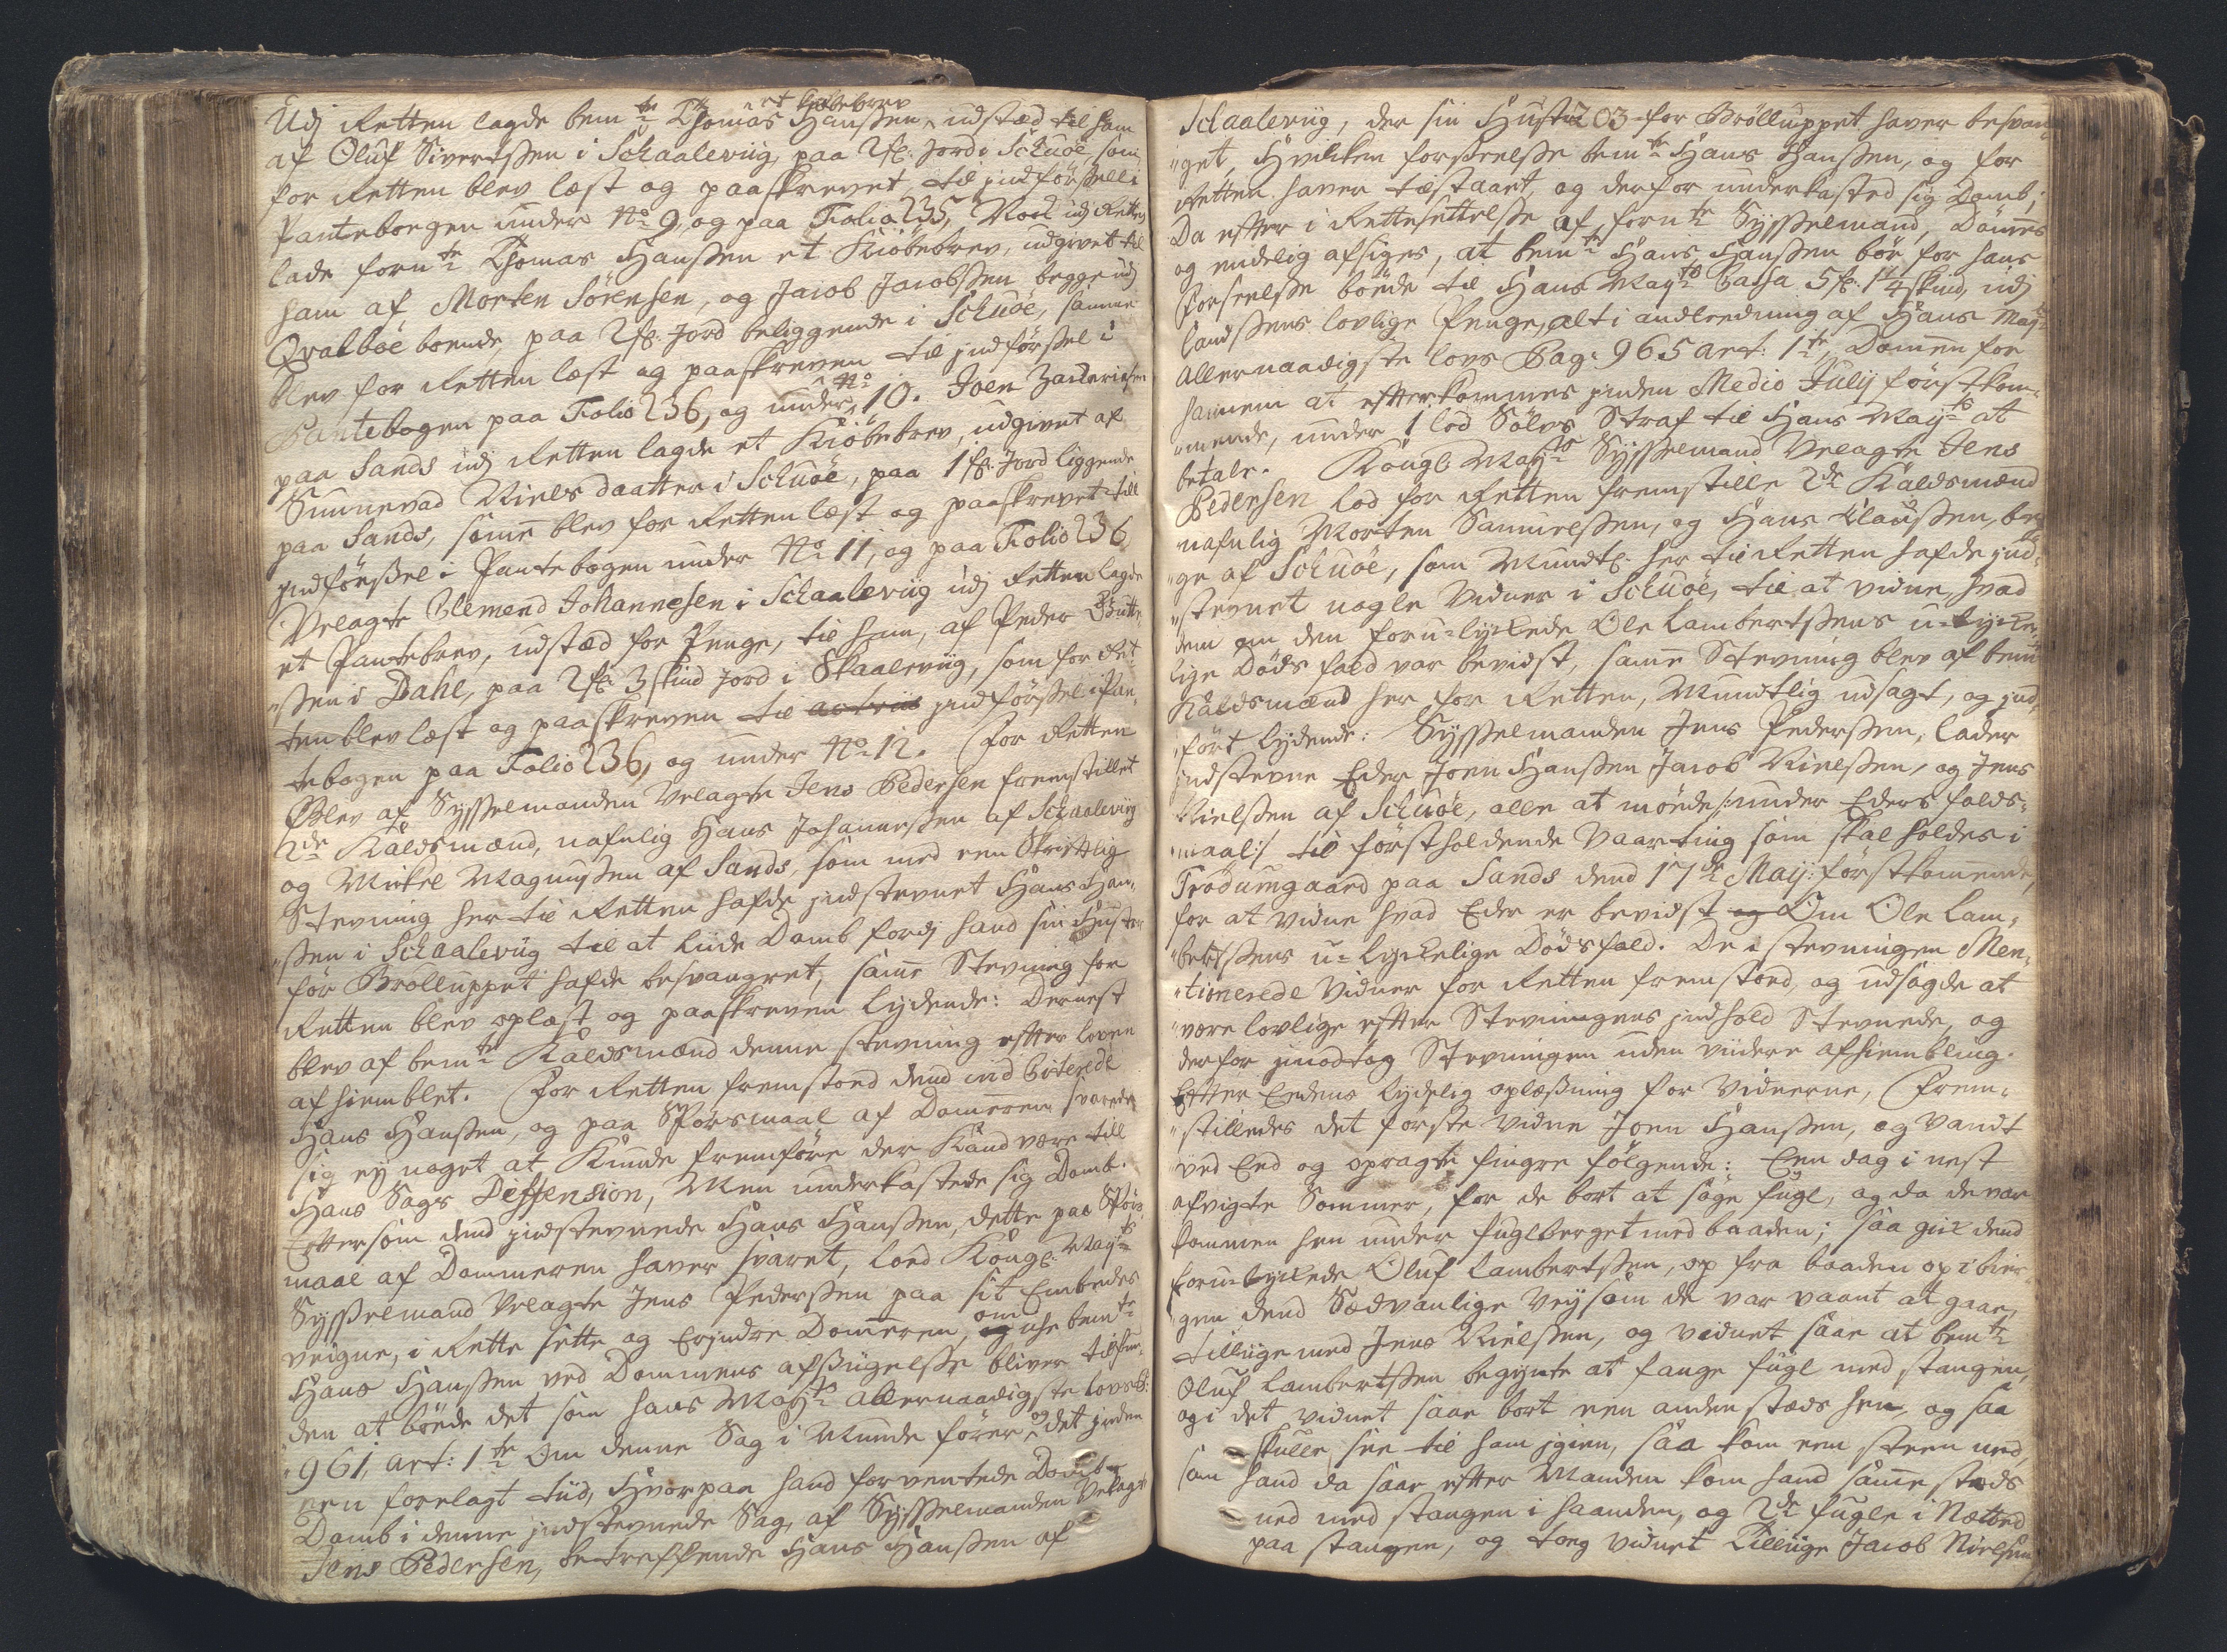 Udj Retten lagde bemte Thomas Hanssen et Kiøbebrev, udstæd til ham
af Oluf Sivertssen i Schaaleviig, paa 2 fl: Jord i Schuøe, som
for Retten blev læst og paaskrevet, til jndførssell i
Pantebogen under No 9, og paa Folio 235, Nock udj Retten
lade fornte Thomas Hanssen et Kiøbebrev, udgivet til
ham af Morten Sørensen, og Jacob Jacobssen begge udj
Qvalbøe boende, paa 2 fl: Jord beliggende i Schuøe, samme
blev for Retten læst og paaskreven til jndførssel i
Pantebogen paa Folio 236, og under No 10. Joen Zachariasen
paa Sands udj Retten lagde et Kiøbebrev, udgivet af
Sunnevad Nielsdaatter i Schuøe, paa 1 fl: Jord liggende
paa Sands, samme blev for Retten læst og paaskrevet till
jndførssel i Pantebogen under No 11, og paa Folio 236
Velagte Clemend Johannesen i Schaaleviig udj Retten lagde
et Pantebrev, udstæd for Penge, til ham, af Peder Gutte,
"ssen i Dahl, paa 2 fl: 3 skind Jord i Skaaleviig, som for Ret,
ten blev læst og paaskreven til jndførssel i Pan,
tebogen paa Folio 236, og under No 12. For Retten
Blev af Sysselmanden Velagte Jens Pedersen fremstillet
2de Kaldsmænd, nafnlig Hans Johannessen af Schaaleviig
og Mickel Magnussen af Sands, som med een Skriftlig
Stevning her til Retten hafde jndstevnet Hans Han,
"ssen i Schaaleviig til at liide Domb fordj hand sin Hustro
før Brølluppet hafde besvangret, samme Stevning for
Retten blev oplæst og paaskreven lydende: Dernest
blev af bemte Kaldsmænd denne stevning efter loven
afhiemblet. For Retten fremstoed dend ind Citerede
Hans Hanssen, og paa Spørsmaal af Dommeren svarede
sig ey noget at Kunde fremføre der Kand være till
Hans Sags Diffension, Men underkastede sig Domb.
Eftersom dend jndstevnede Hans Hanssen, dette paa Spørs,
maal af Dommeren haver svaret, loed Kongl: Mayts
Sysselmand Velagte Jens Pederssen paa sit Embedes
veigne, i Rette sette og Erjndre Dommeren, om ej bemte
Hans Hanssen ved Dommens afsiigelsse bliver tilfun,
den at bøede det som hans Mayts allernaadigste lovs P:
961, art: 1te Om denne Sag i Munde fører og det jnden
een forelagt tiid, Hvorpaa hand forventede Domb
Domb i denne jndstevnede Sag, af Sysselmanden Velagte
Jens Pedersen, betreffende Hans Hanssen af
203
Schaaleviig, der sin Hustro for Brølluppet haver besvan,
"get, Hvilcken forseelsse bemte Hans Hanssen, og for
Retten haver tilstaaet, og derfor underkasted sig Domb,
Da efter i Rettesettelsse af fornte Sysselmand, Dømmes
og endelig afsiges, at bemte Hans Hanssen bør for hans
forseelsse bøede til Hans Mayts Cassa 5 fl: 14 skind, udj
landssens lovlige Penge, alt i anleedning af Hans Mayts
Allernaadigste lovs Pag: 965 art: 1te, Dommen for
hannem at efterkommes jnden Medio Julij førstkom,
"mende, under 1 lod Sølvs Straf til Hans Mayts at
betale. Kongl: Mayts Sysselmand Velagte Jens
Pedersen lod for Retten fremstille 2de Kaldsmænd
nafnlig Morten Samuelssen, og Hans Claussen, beg,
"ge af Schuøe, som Mundtl: her til Retten hafde jnd,
"stevnet nogle Vidner i Schuøe, til at vidne, hvad
dem om den foru=lyckede Ole Lambertssens u=lycke,
lige Døds fald var bevidst, samme Stevning blev af bemte
Kaldsmænd her for Retten, Mundtlig udsagt, og jnd,
"ført lydende: Sysselmanden Jens Pederssen, lader
jndstevne Eder Joen Hanssen Jacob Nielssen, og Jens
Nielssen af Schuøe, alle at møede /:under Eders falds,
"maal:/ til førstholdende Vaarting som skal holdes i
Trødumgaard paa Sands dend 17de Maij: førstkommende,
for at vidne hvad Eder er bevidst Om Ole Lam,
"bertssens u=lyckelige Dødsfald. De i stevningen Men,
"tionerede Vidner for Retten fremstoed, og udsagde at
være lovlige efter Stevningens jndhold Stevnede, og
derfor jmodtog Stevningen uden viidere afhiembling.
Efter Eedens lydelig oplæssning for Vidnerne, frem,
"stilledes det første Vidne Joen Hanssen, og Vandt
ved Eed og opragte fingre følgende: Een dag i nest
afvigte Sommer, for de bort at søge fugl, og da de var
kommen hen under fuglberget med baaden; saa gick dend
foru=lyckede Oluf Lambertssen, op fra baaden op i bier,
gen dend Sædvanlige Vey som de var vaant at gaae,
tilliige med Jens Nielssen, og vidnet saae at bemte
Oluf Lambertssen begynte at fange fugl med stangen,
og i det vidnet saae bort een anden stæds hen, og saa
skulle see til ham jgien, saa kom een steen ned,
som hand da saae efter Manden kom hand samme steds
ned med stangen i haanden, og 2de fugle i Netted
paa stangen, og toeg vidnet tilliige Jacob Nielssen